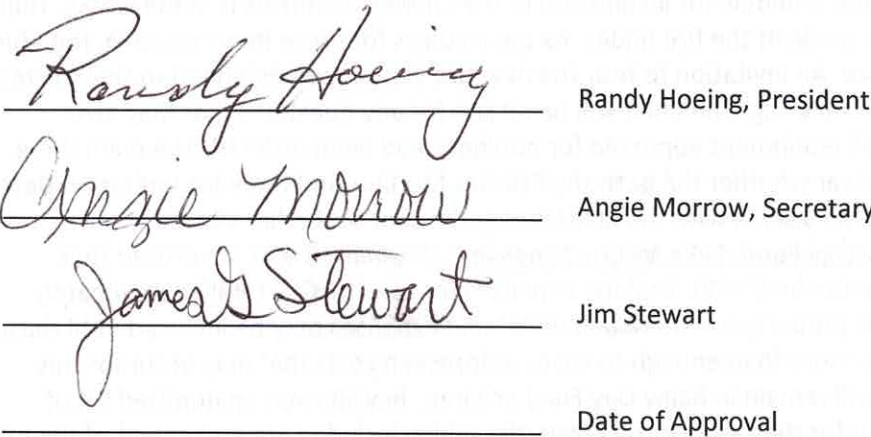 Randy Hoeing
Randy Hoeing, President
Angie Morrow
Angie Morrow, Secretary
James G Stewart
Jim Stewart
Date of Approval